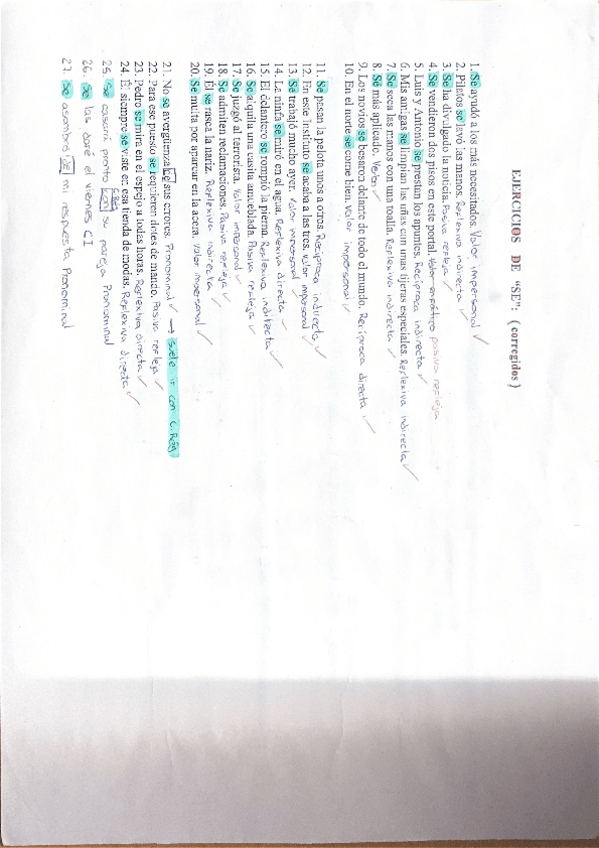 EJERCICIOS DE "SE": (corregidos)
1. Se ayudó a los más necesitados. Valor impersonal
2. Pilatos se lavó las manos. Reflexiva indirecta
3. Se ha divulgado la noticia. Pasiva refleja
4. Se vendieron dos pisos en este portal. Valor enfático pasiva refleja
5. Luis y Antonio se prestan los apuntes. Recíproca indirecta
6. Mis amigas se limpian las uñas con unas tijeras especiales. Reflexiva indirecta
7. Se seca las manos con una toalla. Reflexiva indirecta
8. Sé más aplicado. Verbo
9. Los novios se besaron delante de todo el mundo. Recíproca directa
10. En el norte se come bien. Valor impersonal
11. Se pasan la pelota unos a otros. Recíproca indirecta
12. En este instituto se acaba a las tres. Valor impersonal
13. Se trabajó mucho ayer. Valor impersonal
14. La ninfa se miró en el agua. Reflexiva directa
15. El delantero se rompió la pierna. Reflexiva indirecta
16. Se alquila una casita amueblada. Pasiva refleja
17. Se juzgó al terrorista. Valor impersonal
18. Se admiten reclamaciones. Pasiva refleja
19. Él se rasca la nariz. Reflexiva indirecta
20. Se multa por aparcar en la acera. Valor impersonal
21. No se avergüenza de sus errores. Pronominal → suele ir con C. Rég
22. Para ese puesto se requieren dotes de mando. Pasiva refleja
23. Pedro se mira en el espejo a todas horas. Reflexiva directa
24. Él siempre se viste en esa tienda de modas. Reflexiva directa
25. Se casará pronto con su pareja Pronominal
26. Se las daré el viernes CI
27. Se asombró de mi respuesta Pronominal